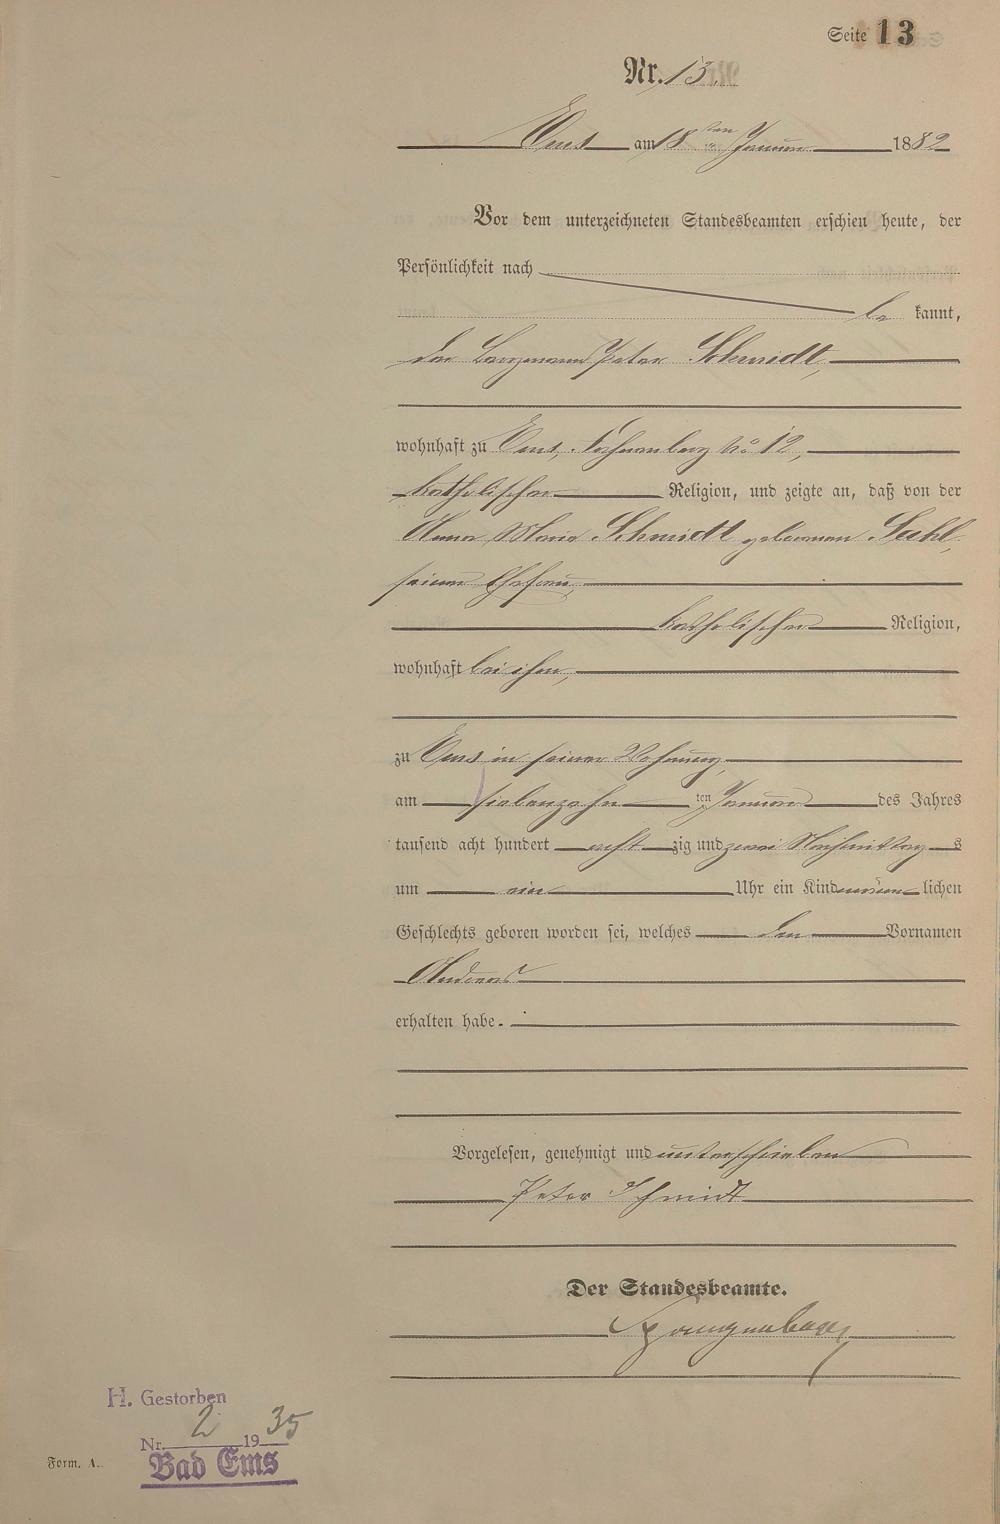 Seite 13
Nr. 13.
Ems am 18 ten Januar 1882
Vor dem unterzeichneten Standesbeamten erschien heute, der
Persönlichkeit nach
be kannt,
der Bergmann Peter Schmidt,
wohnhaft zu Ems, No 12,
katholischer Religion, und zeigte an, daß von der
Anna Maria Schmidt geborenen Sahl,
seiner Ehefrau,
katholischer Religion,
wohnhaft bei ihm,
zu Ems in seiner Wohnung,
am siebenzehn ten Januar des Jahres
tausend acht hundert acht zig und zwei Nachmittag s
um ein Uhr ein Kind männ lichen
Geschlechts geboren worden sei, welches den Vornamen
Andreas
erhalten habe.
Vorgelesen, genehmigt und unterschrieben
Peter Schmidt
Der Standesbeamte.
H. Gestorben
Nr. 2 1935
Bad Ems
Form. A.